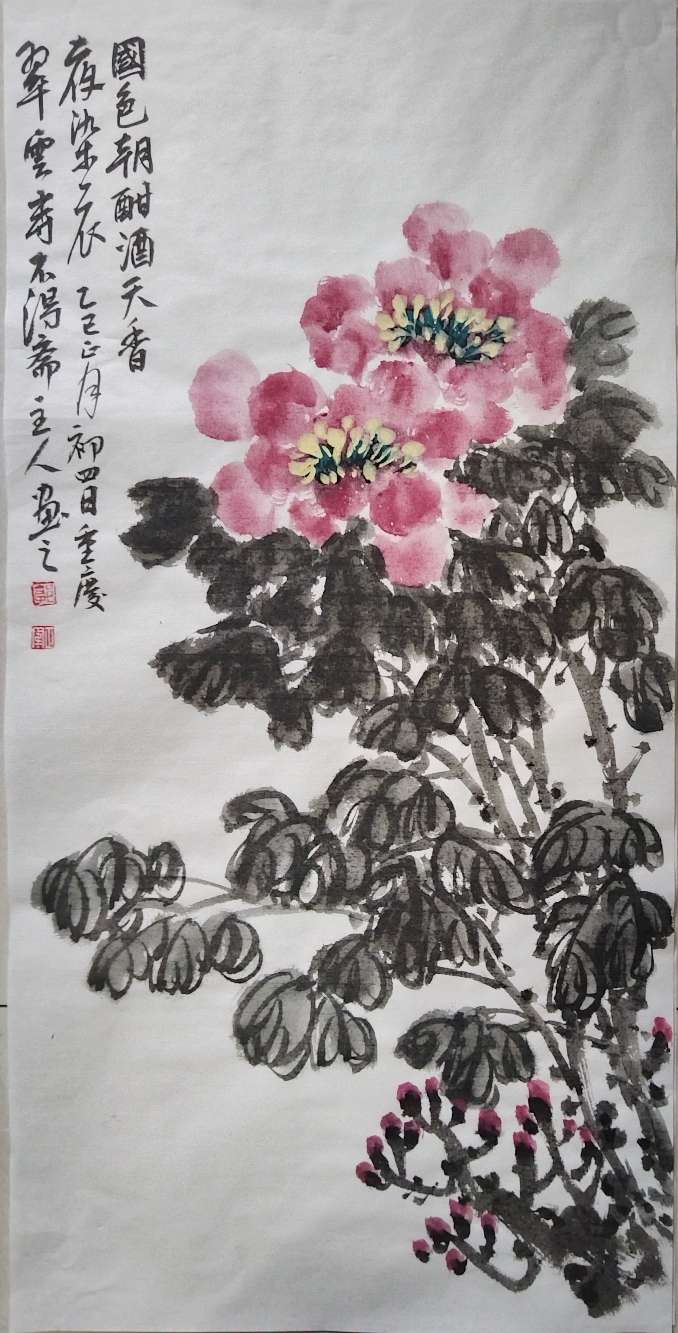 國色朝酣酒天香
夜染衣 乙巳正月初四日重慶
翠雲寿不得斋主人画之